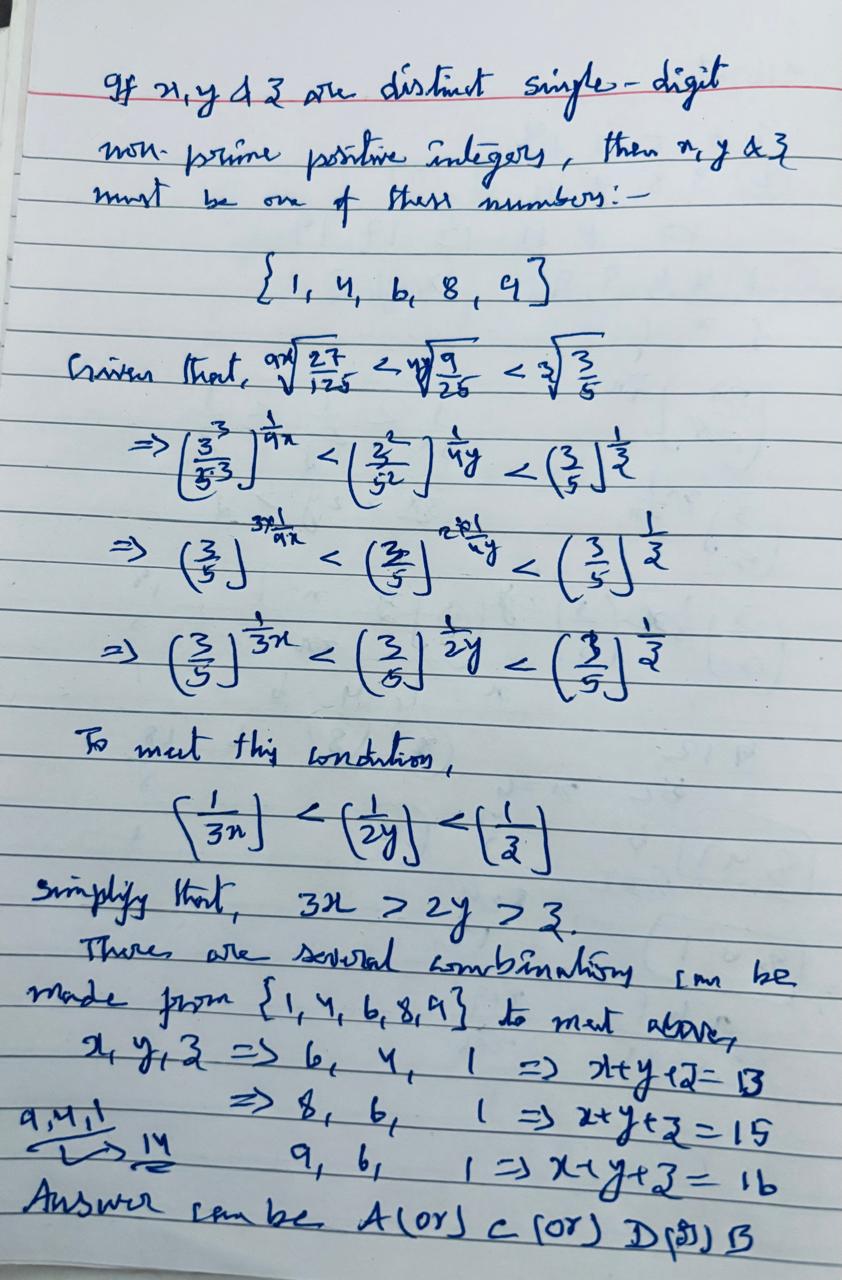 If x, y & z are distinct single-digit
non-prime positive integers, then x, y & z
must be one of these numbers:-
{1, 4, 6, 8, 9}
Given that, ⁹ˣ√(27/125) < ⁴ʸ√(9/25) < ᶻ√(3/5)
⇒ (3³/5³)^(1/9x) < (3²/5²)^(1/4y) < (3/5)^(1/z)
⇒ (3/5)^(3×1/9x) < (3/5)^(2×1/4y) < (3/5)^(1/z)
⇒ (3/5)^(1/3x) < (3/5)^(1/2y) < (3/5)^(1/z)
To meet this condition,
(1/3x) < (1/2y) < (1/z)
simplify that, 3x > 2y > z.
There are several combinations can be
made from {1, 4, 6, 8, 9} to meet above,
x, y, z ⇒ 6, 4, 1 ⇒ x+y+z = 13
⇒ 8, 6, 1 ⇒ x+y+z = 15
9,4,1 → 14
9, 6, 1 ⇒ x+y+z = 16
Answer can be A (or) C (or) D (or) B